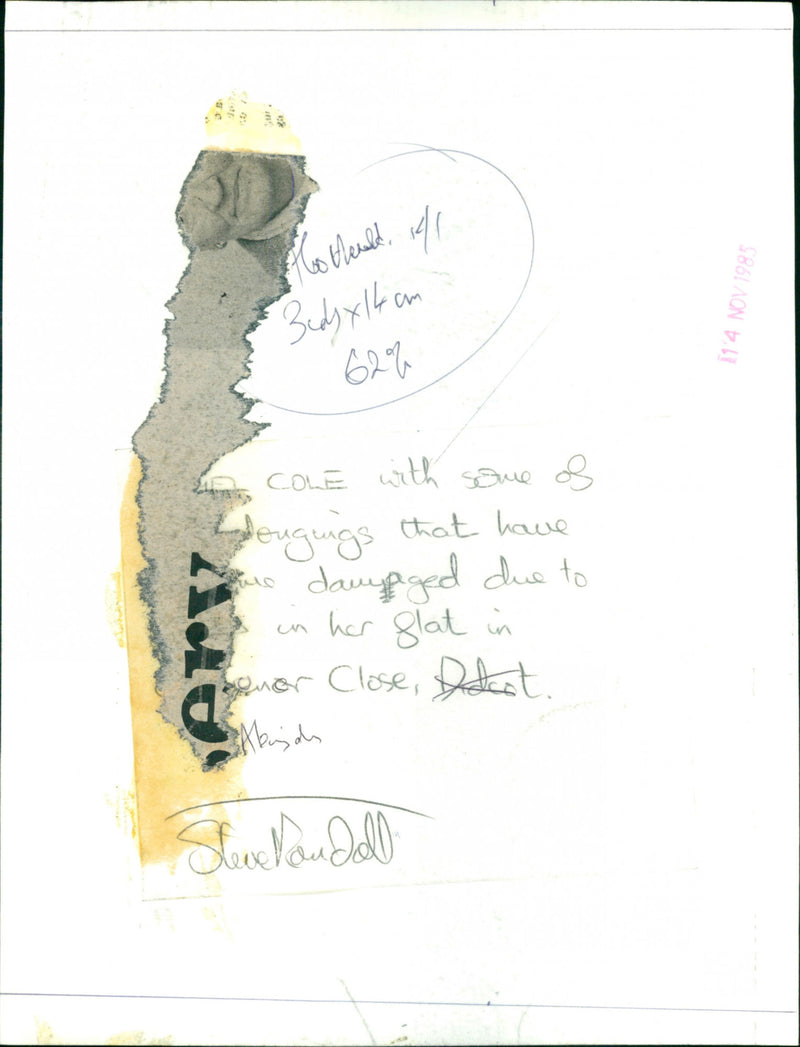 14/1
3cols x 14 cm
62%
14 NOV 1985
COLE with some of
longings that have
damaged due to
in her flat in
Close, Didcot.
Abingdon
Steve Randall
ery